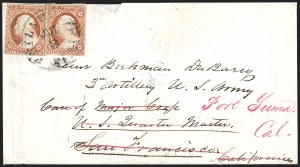 Lieut Beekman DuBarry
3d Artillery U. S. Army
Care of Major Cross
Fort Yuma
U. S. Quarter Master
Cal.
San Francisco
California